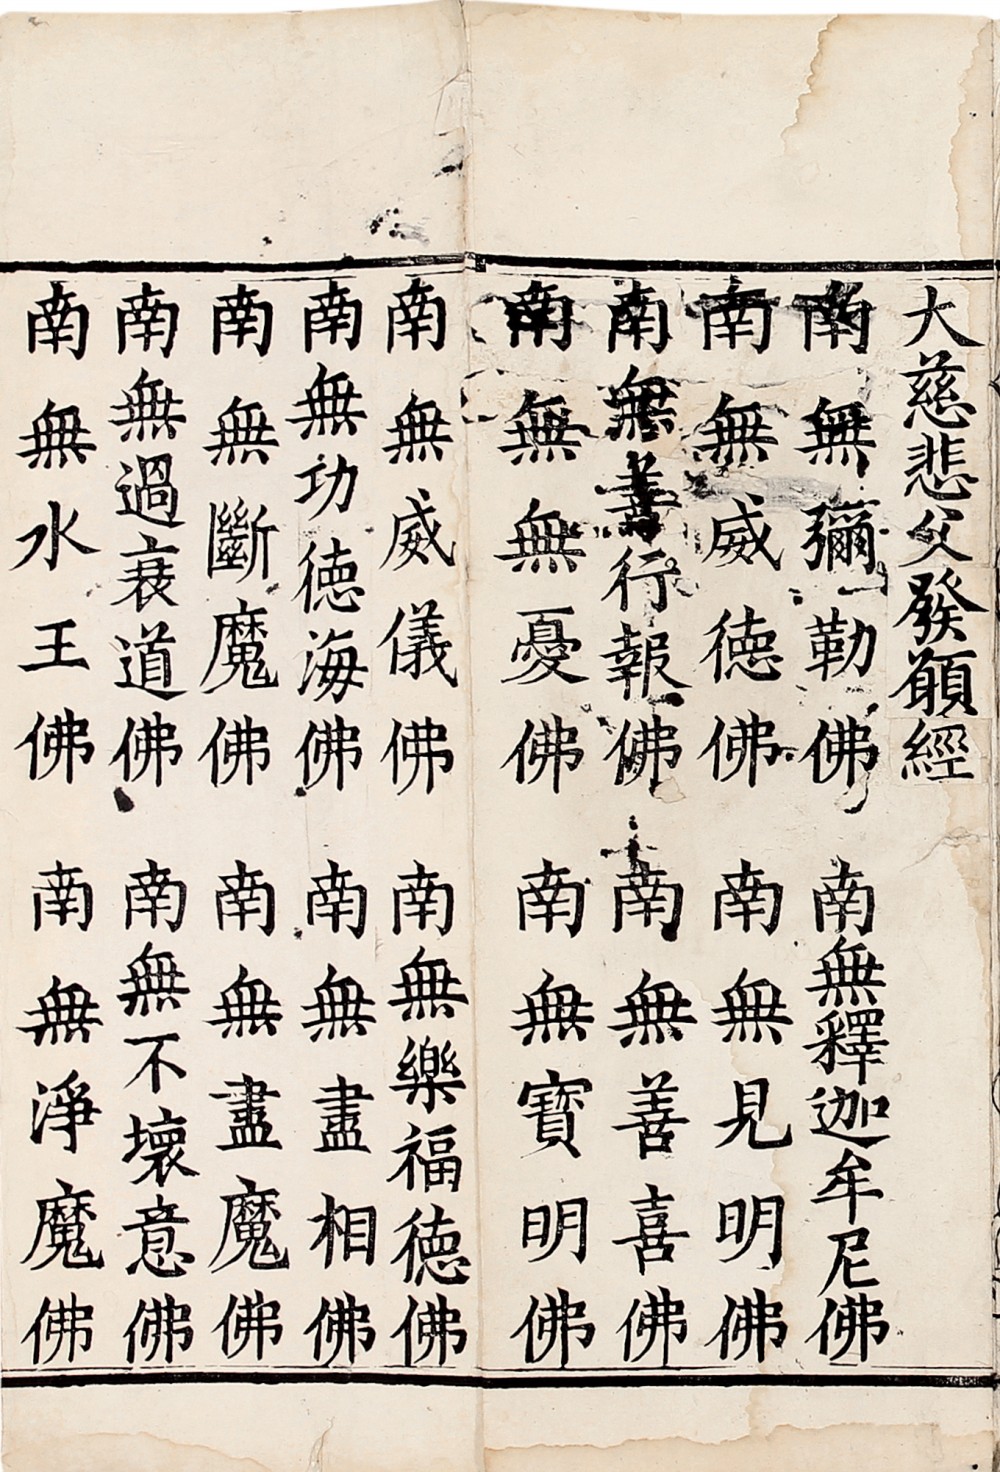 大慈悲父發願經
南無彌勒佛 南無釋迦牟尼佛
南無威德佛 南無見明佛
南無善行報佛 南無善喜佛
南無無憂佛 南無寶明佛
南無威儀佛 南無樂福德佛
南無功德海佛 南無盡相佛
南無斷魔佛 南無盡魔佛
南無過衰道佛 南無不壞意佛
南無水王佛 南無淨魔佛